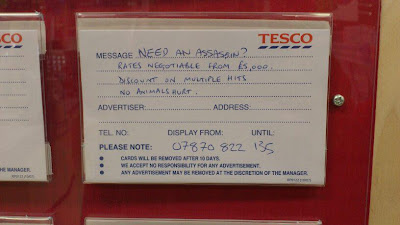 CO
TESCO
MESSAGE NEED AN ASSASSIN?
RATES NEGOTIABLE FROM £5,000.
DISCOUNT ON MULTIPLE HITS
NO ANIMALS HURT.
ADVERTISER: ADDRESS:
TEL. NO: DISPLAY FROM: UNTIL:
PLEASE NOTE: 07870 822 135
• CARDS WILL BE REMOVED AFTER 10 DAYS.
• WE ACCEPT NO RESPONSIBILITY FOR ANY ADVERTISEMENT.
• ANY ADVERTISEMENT MAY BE REMOVED AT THE DISCRETION OF THE MANAGER.
THE MANAGER.